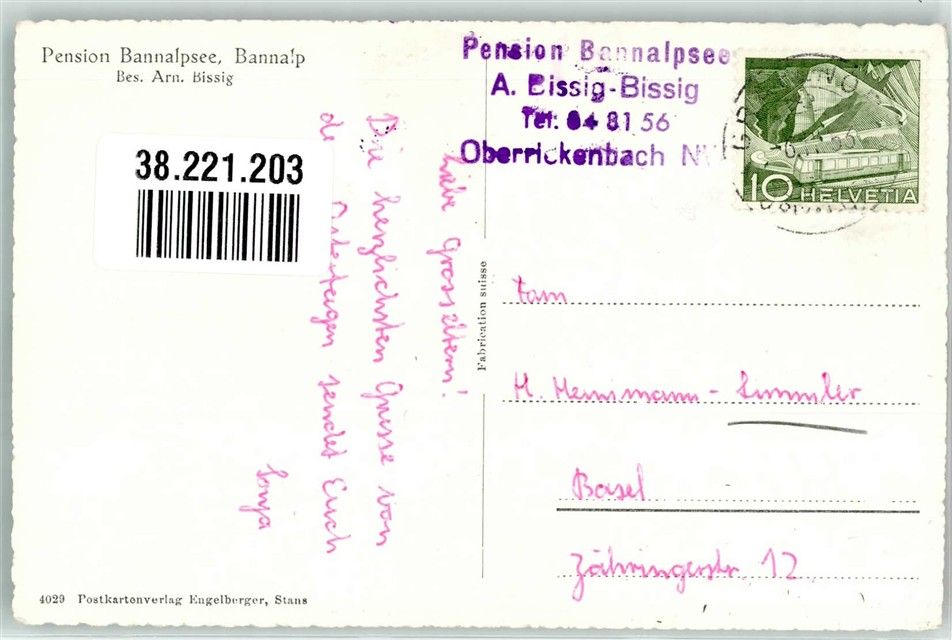 Pension Bannalpsee, Bannalp
Bes. Arn. Bissig
Pension Bannalpsee
A. Bissig-Bissig
Tel: 84 81 56
Oberrickenbach N
10 HELVETIA
38.221.203
Liebe Grosseltern!
Die herzlichsten Grüsse von
de Ostertagen sendet Euch
Sonja
Fabrication suisse
Fam
H. Hemmann - Summler
Basel
Zähringerstr. 12
4029 Postkartenverlag Engelberger, Stans